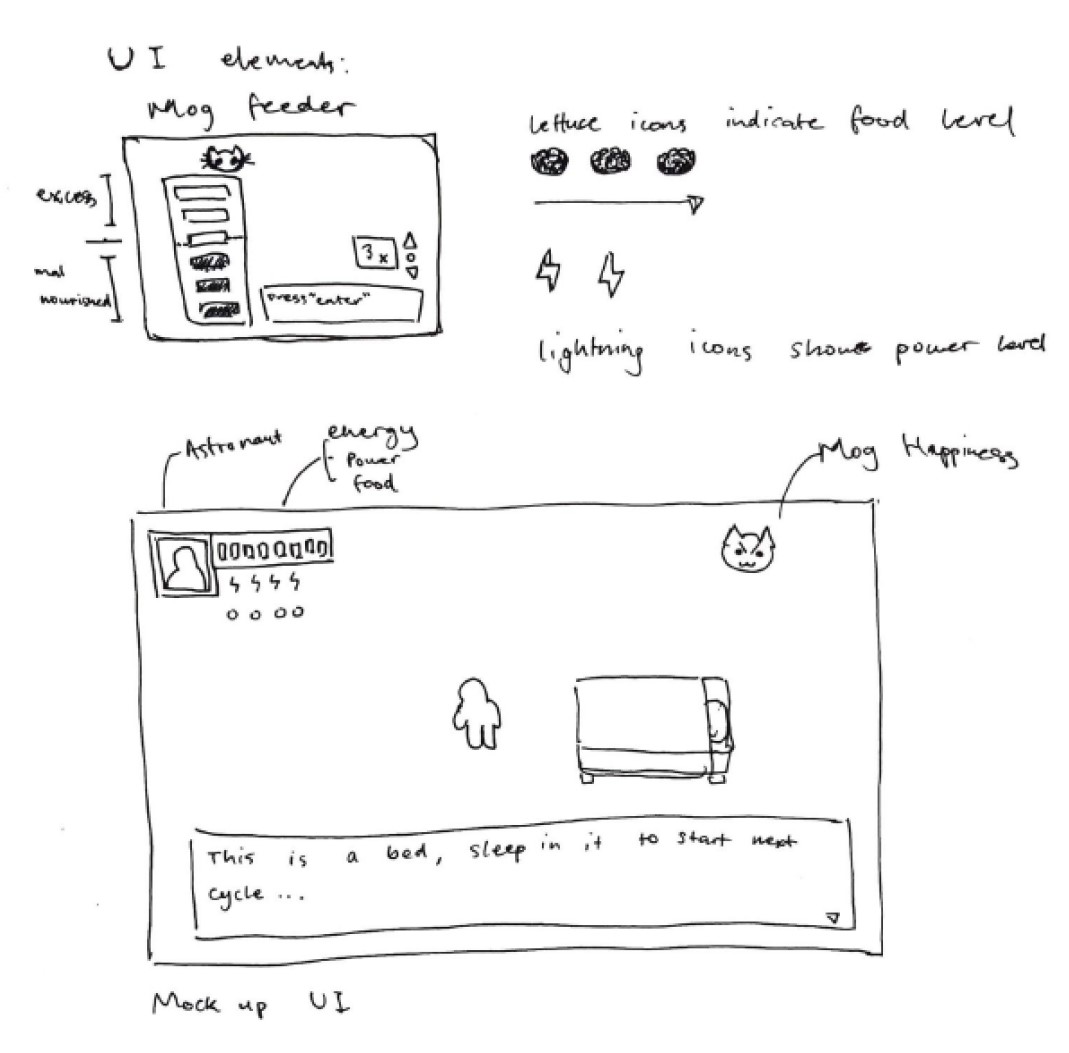 UI elements:
Mog feeder
excess
mal
nourished
3x
press "enter"
lettuce icons indicate food level
lightning icons show power level
Astronaut
energy
- Power
food
Mog Happiness
This is a bed, sleep in it to start next
cycle ...
Mock up UI